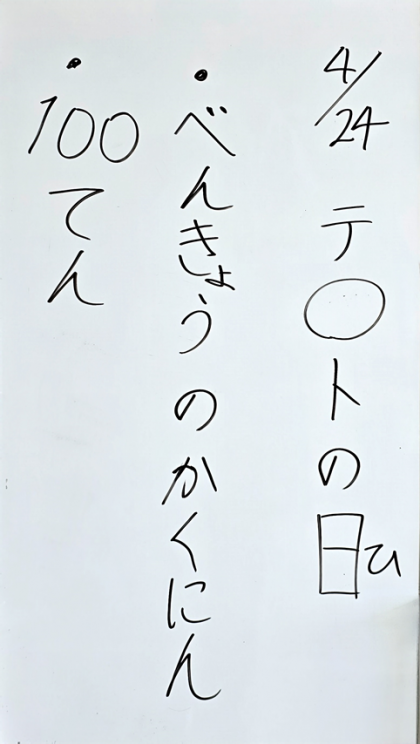 4/24 テ○トの日ひ
・べんきょうのかくにん
・100てん